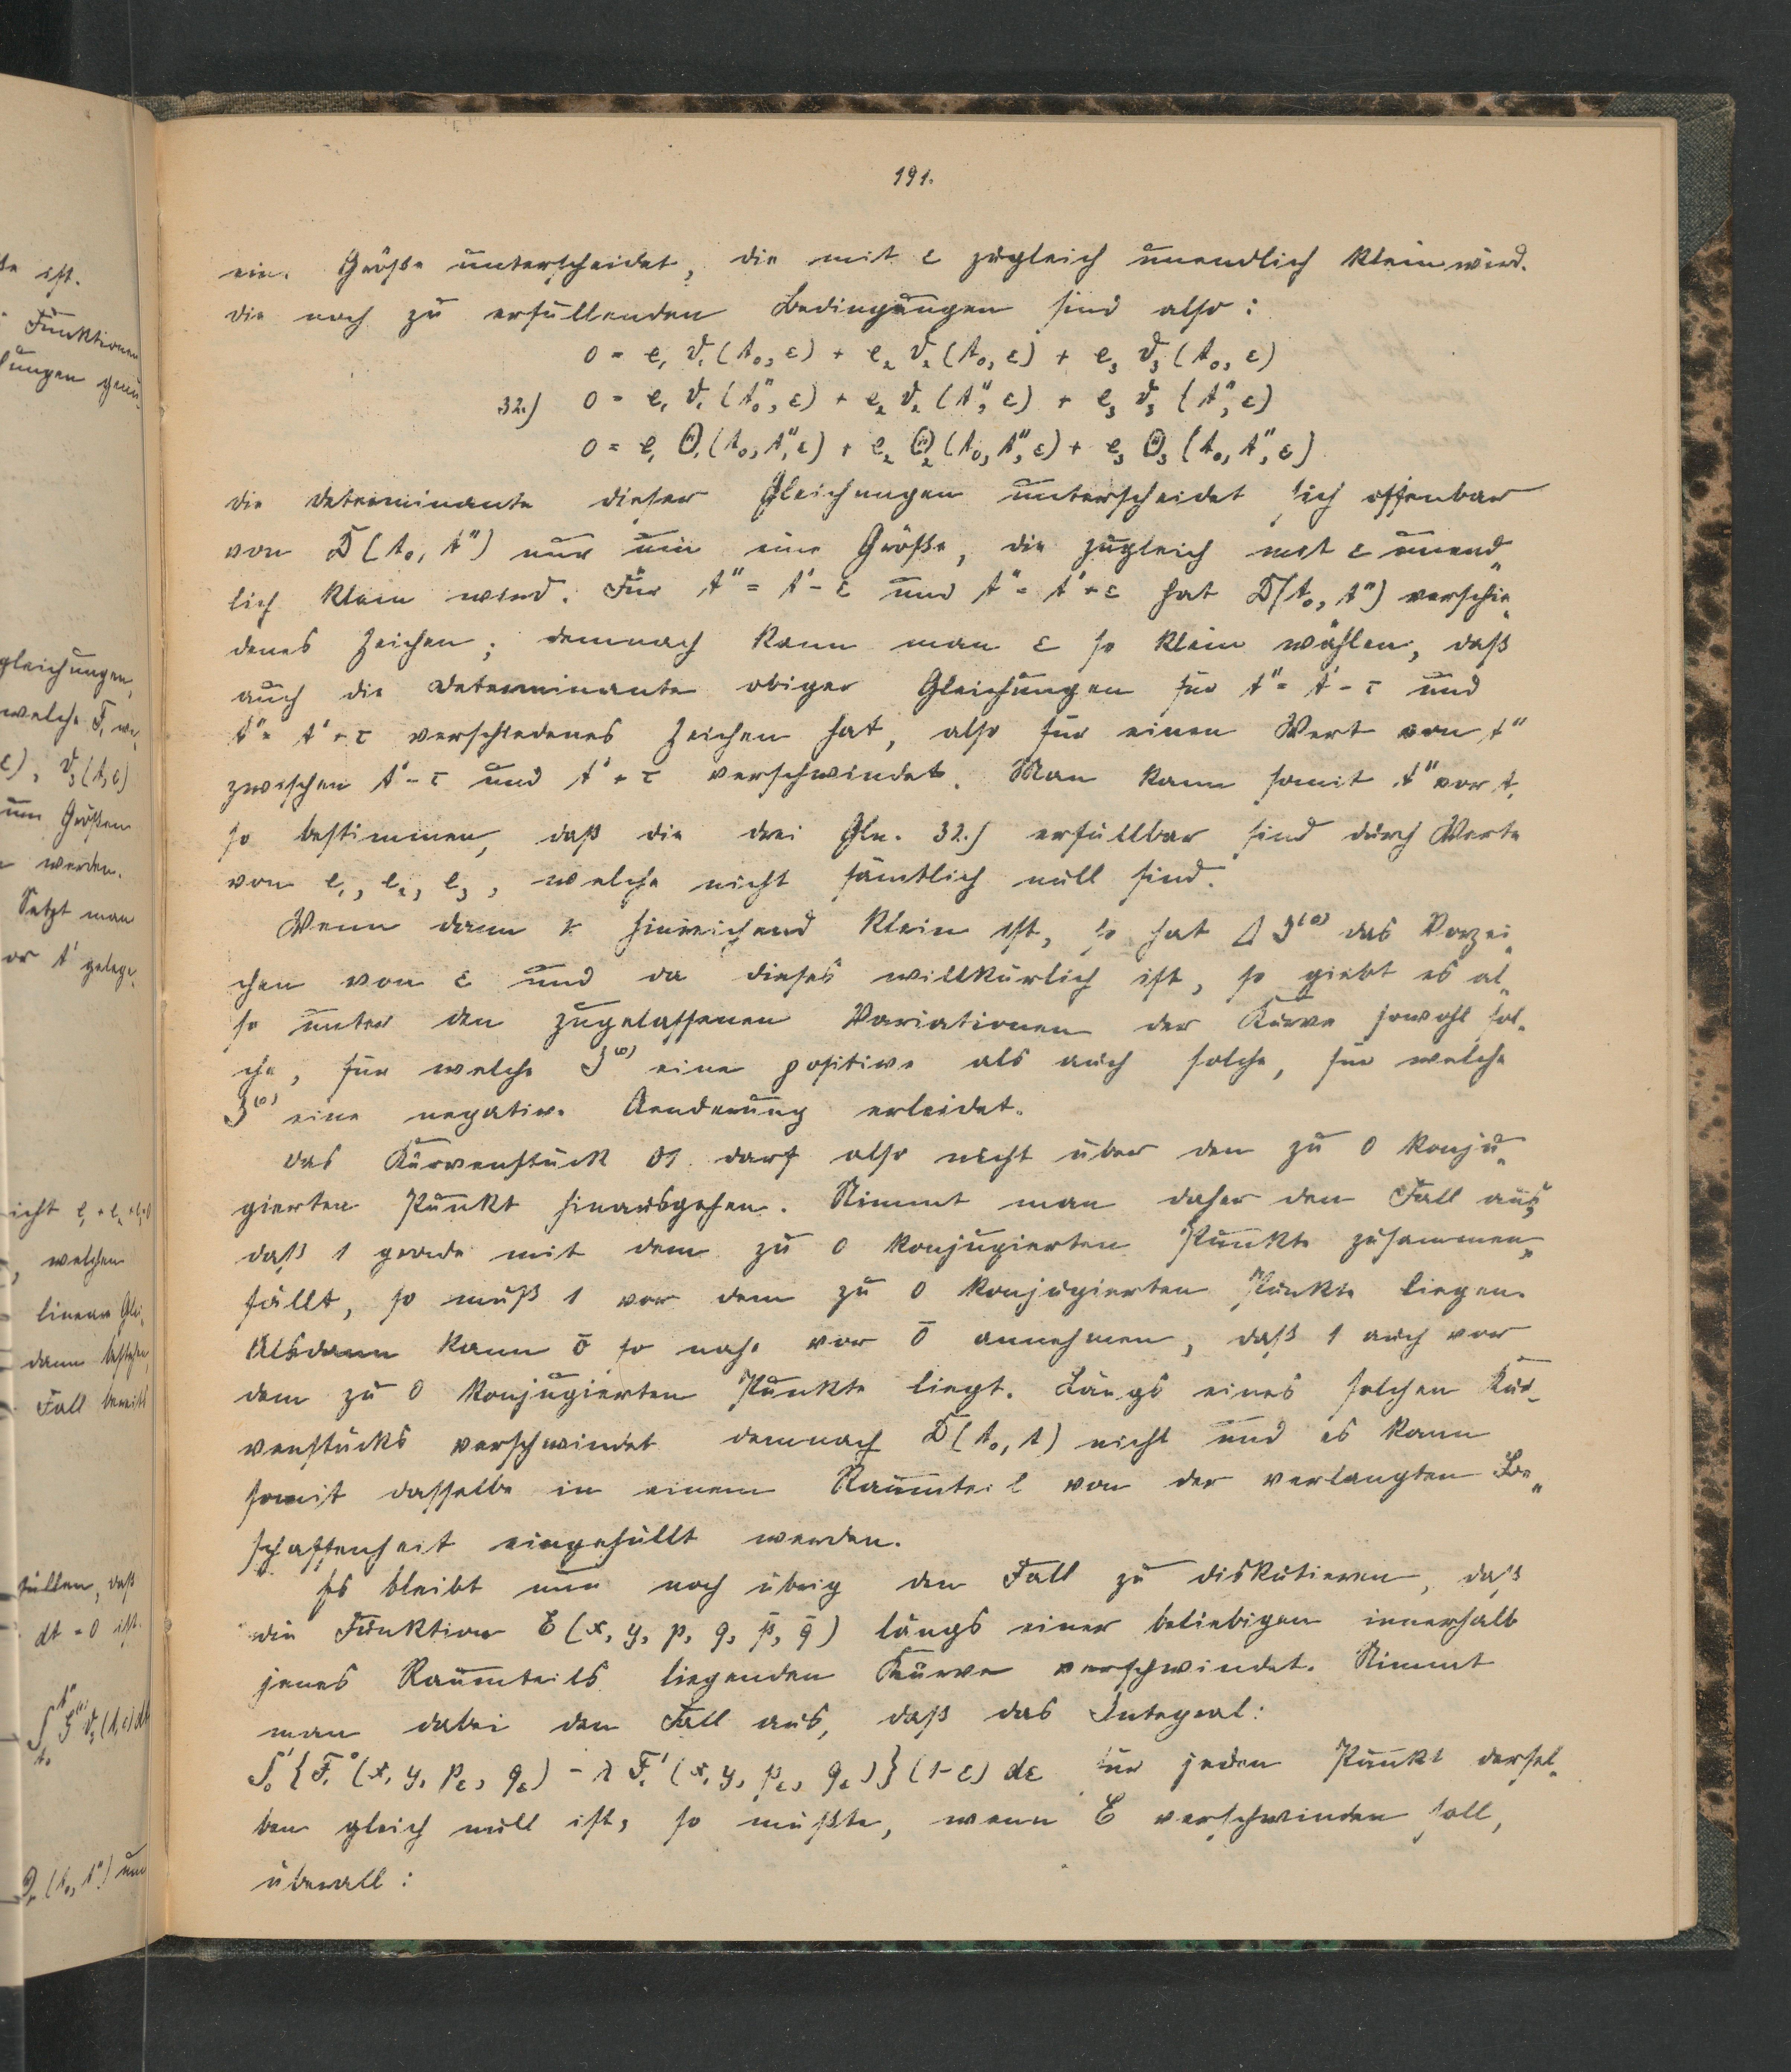 te ist.
Funktionen
gleichungen,
welche F₁
ε), ϑ₃(t,ε)
um Größen
werden.
Setzt man
or t' gelege„
icht e₁ + e₂ +
, welchen
linearen Glei„
dann bestehen
Fall bereits
füllen, daß
dt = 0 ist.
(t₀, t'') um
191.
eine Größe unterscheidet, die mit ε zugleich unendlich klein wird.
die noch zu erfüllenden Bedingungen sind also:
0 = e₁ ϑ₁(t₀, ε) + e₂ ϑ₂(t₀, ε) + e₃ ϑ₃(t₀, ε)
32.) 0 = e₁ ϑ₁(t₀'', ε) + e₂ ϑ₂(t'', ε) + e₃ ϑ₃(t'', ε)
0 = e₁ Θ₁(t₀, t'', ε) + e₂ Θ₂(t₀, t'', ε) + e₃ Θ₃(t₀, t'', ε)
die Determinante dieser Gleichungen unterscheidet sich offenbar
von D(t₀, t'') nur um eine Größe, die zugleich mit ε unend„
lich klein wird. Für t'' = t' - ε und t'' = t' + ε hat D(t₀, t'') verschie„
denes Zeichen; demnach kann man ε so klein wählen, daß
auch die Determinante obiger Gleichungen für t'' = t' - τ und
t'' = t' + τ verschiedenes Zeichen hat, also für einen Wert von t''
zwischen t' - τ und t' + τ verschwindet. Man kann somit t'' vor t₁
so bestimmen, daß die drei Gln. 32.) erfüllbar sind durch Werte
von e₁, e₂, e₃, welche nicht sämtlich null sind.
Wenn dann k hinreichend klein ist, so hat Δ J⁽⁰⁾ das Vorzei„
chen von ε und da dieses willkürlich ist, so giebt es al„
so unter den zugelassenen Variationen der Kurve sowohl sol„
che, für welche J⁽⁰⁾ eine positive als auch solche, für welche
J⁽⁰⁾ eine negative Aenderung erleidet.
das Kurvenstück 01 darf also nicht über den zu 0 konju„
gierten Punkt hinausgehen. Nimmt man daher den Fall aus,
daß 1 gerade mit dem zu 0 konjugierten Punkte zusammen„
fällt, so muß 1 vor dem zu 0 konjugierten Punkte liegen.
Alsdann kann ō so nahe vor ō annehmen, daß 1 auch vor
dem zu 0 konjugierten Punkte liegt. Längs eines solchen Kur„
venstücks verschwindet demnach D(t₀, t) nicht und es kann
somit dasselbe in einem Raumteil von der verlangten Be„
schaffenheit eingehüllt werden.
Es bleibt nun noch übrig den Fall zu diskutieren, daß
die Funktion E(x, y, p, q, p̄, q̄) längs einer beliebigen innerhalb
jenes Raumteils liegenden Kurve verschwindet. Nimmt
man dabei den Fall aus, daß das Integral:
∫₀¹ {F₁⁰(x, y, pε, qε) - λ F₁¹(x, y, pε, qε)} (1-ε) dε für jeden Punkt dersel„
ben gleich null ist, so müßte, wenn E verschwinden soll,
überall: